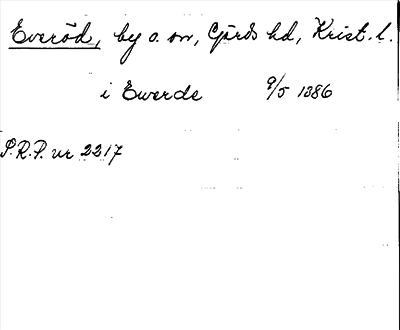 Everöd, by o. sn, Gärds hd, Krist. l.
i Ewerde 9/5 1386
S.R.P. nr 2217